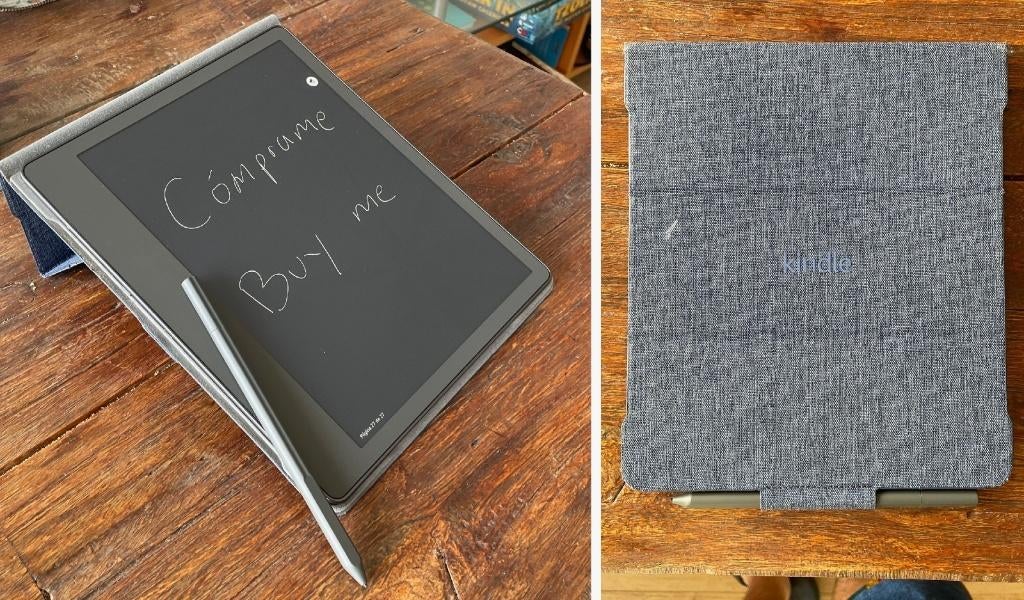 Cómprame
Buy me
Página 27 de 27
kindle